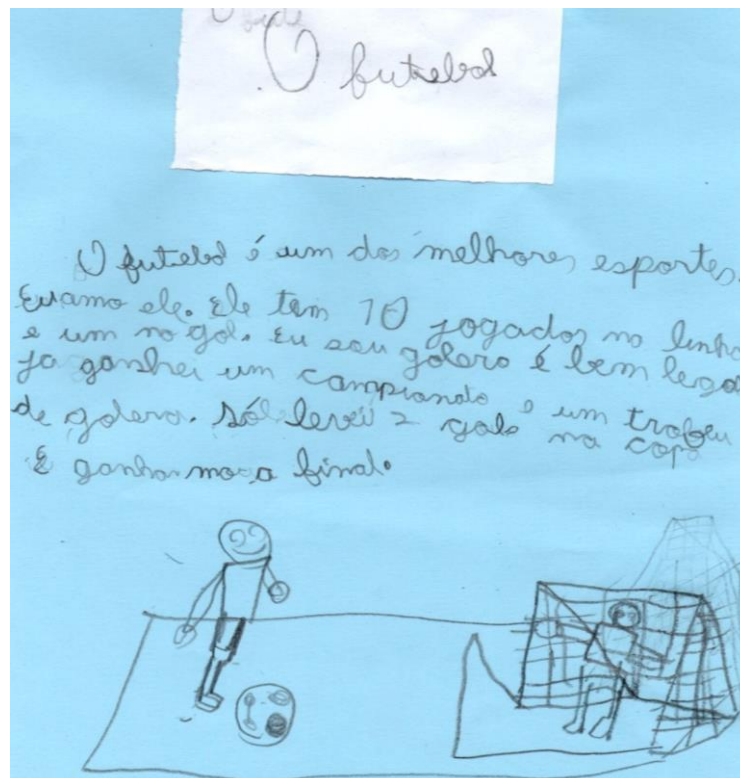 O
O futebol
O futebol é um dos melhores esportes.
Eu amo ele. Ele tem 10 jogados na linha
e um no gol. Eu sou golero é bem legal
ja ganhei um campionato e um trofeu
de golero. Só levei 2 gols na copa
E ganhamos a final.